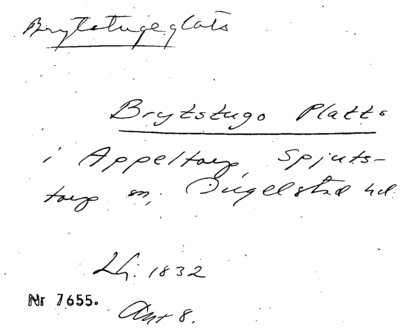 Brytstugeplats
Brytstugo Platts
i Appeltorp, Spjuts-
torp sn, Ingelstad hd.
Lh. 1832
Nr 7655. Akt 8.